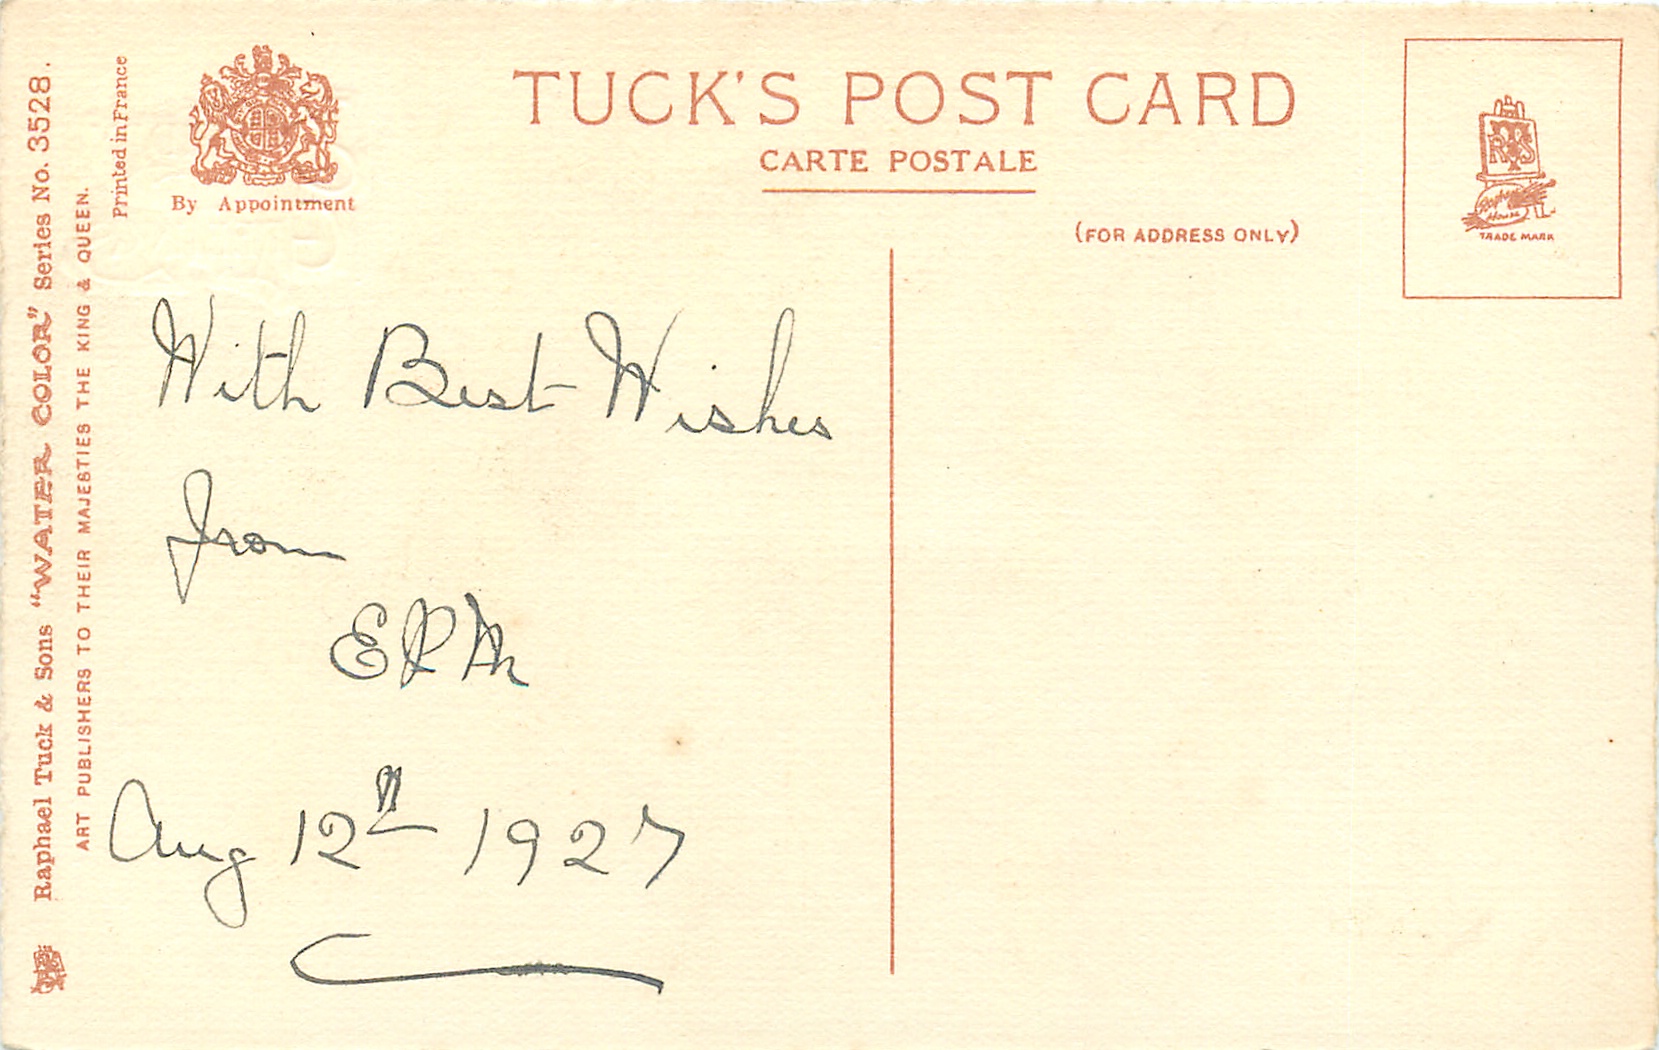 TUCK'S POST CARD
CARTE POSTALE
(FOR ADDRESS ONLY)
By Appointment
Printed in France
Raphael Tuck & Sons "WATER COLOR" Series No. 3528.
ART PUBLISHERS TO THEIR MAJESTIES THE KING & QUEEN.
RTS
Raphael
House
TRADE MARK
With Best Wishes
from
Aug 12th 1927